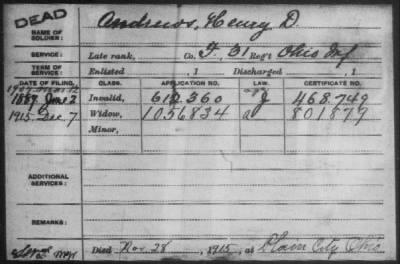 DEAD
NAME OF SOLDIER: Andrews, Henry D.
SERVICE: Late rank, Co. F, 31 Reg't Ohio Inf
TERM OF SERVICE: Enlisted , 1 Discharged , 1
DATE OF FILING. CLASS. APPLICATION NO. LAW. CERTIFICATE NO.
1889 June 2 Invalid, 612360 J 468.749
1915 Dec. 7 Widow, 1056834 a 801879
Minor,
ADDITIONAL SERVICES:
REMARKS:
Died Nov 28, 1915, at Plain City Ohio